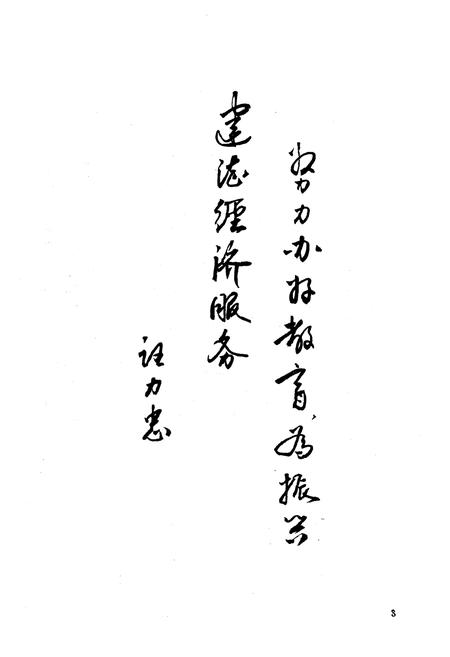 努力办好教育，为振兴
建德经济服务
汪力忠
3